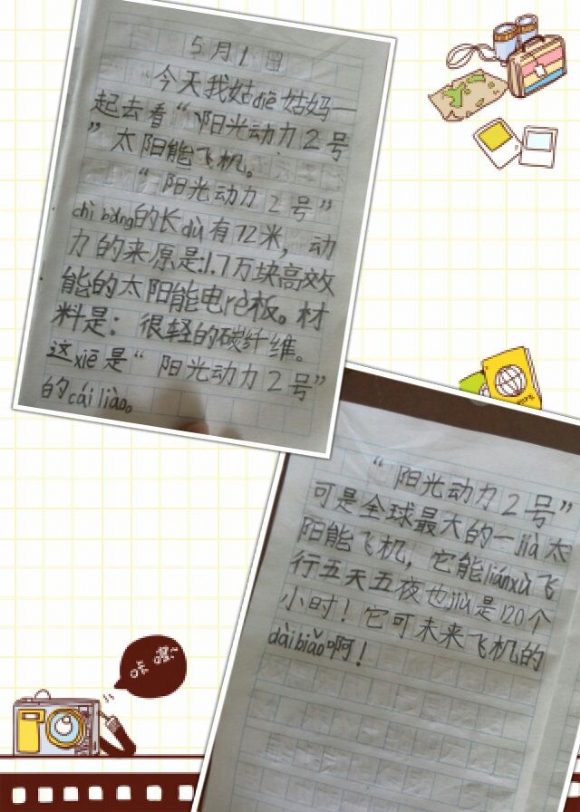 5月1日
今天我姑diē姑妈一
起去看“阳光动力2号
”太阳能飞机。
“阳光动力2号”
chì bǎng的长dù有72米,动
力的来原是:1.7万块高效
能的太阳能电rè板。材
料是:很轻的碳纤维。
这xiē是“阳光动力2号”
的cái liào。
“阳光动力2号”
可是全球最大的一jià太
阳能飞机,它能liánxù飞
行五天五夜也jiù是120个
小时!它可未来飞机的
dàibiǎo啊!
咔嚓~